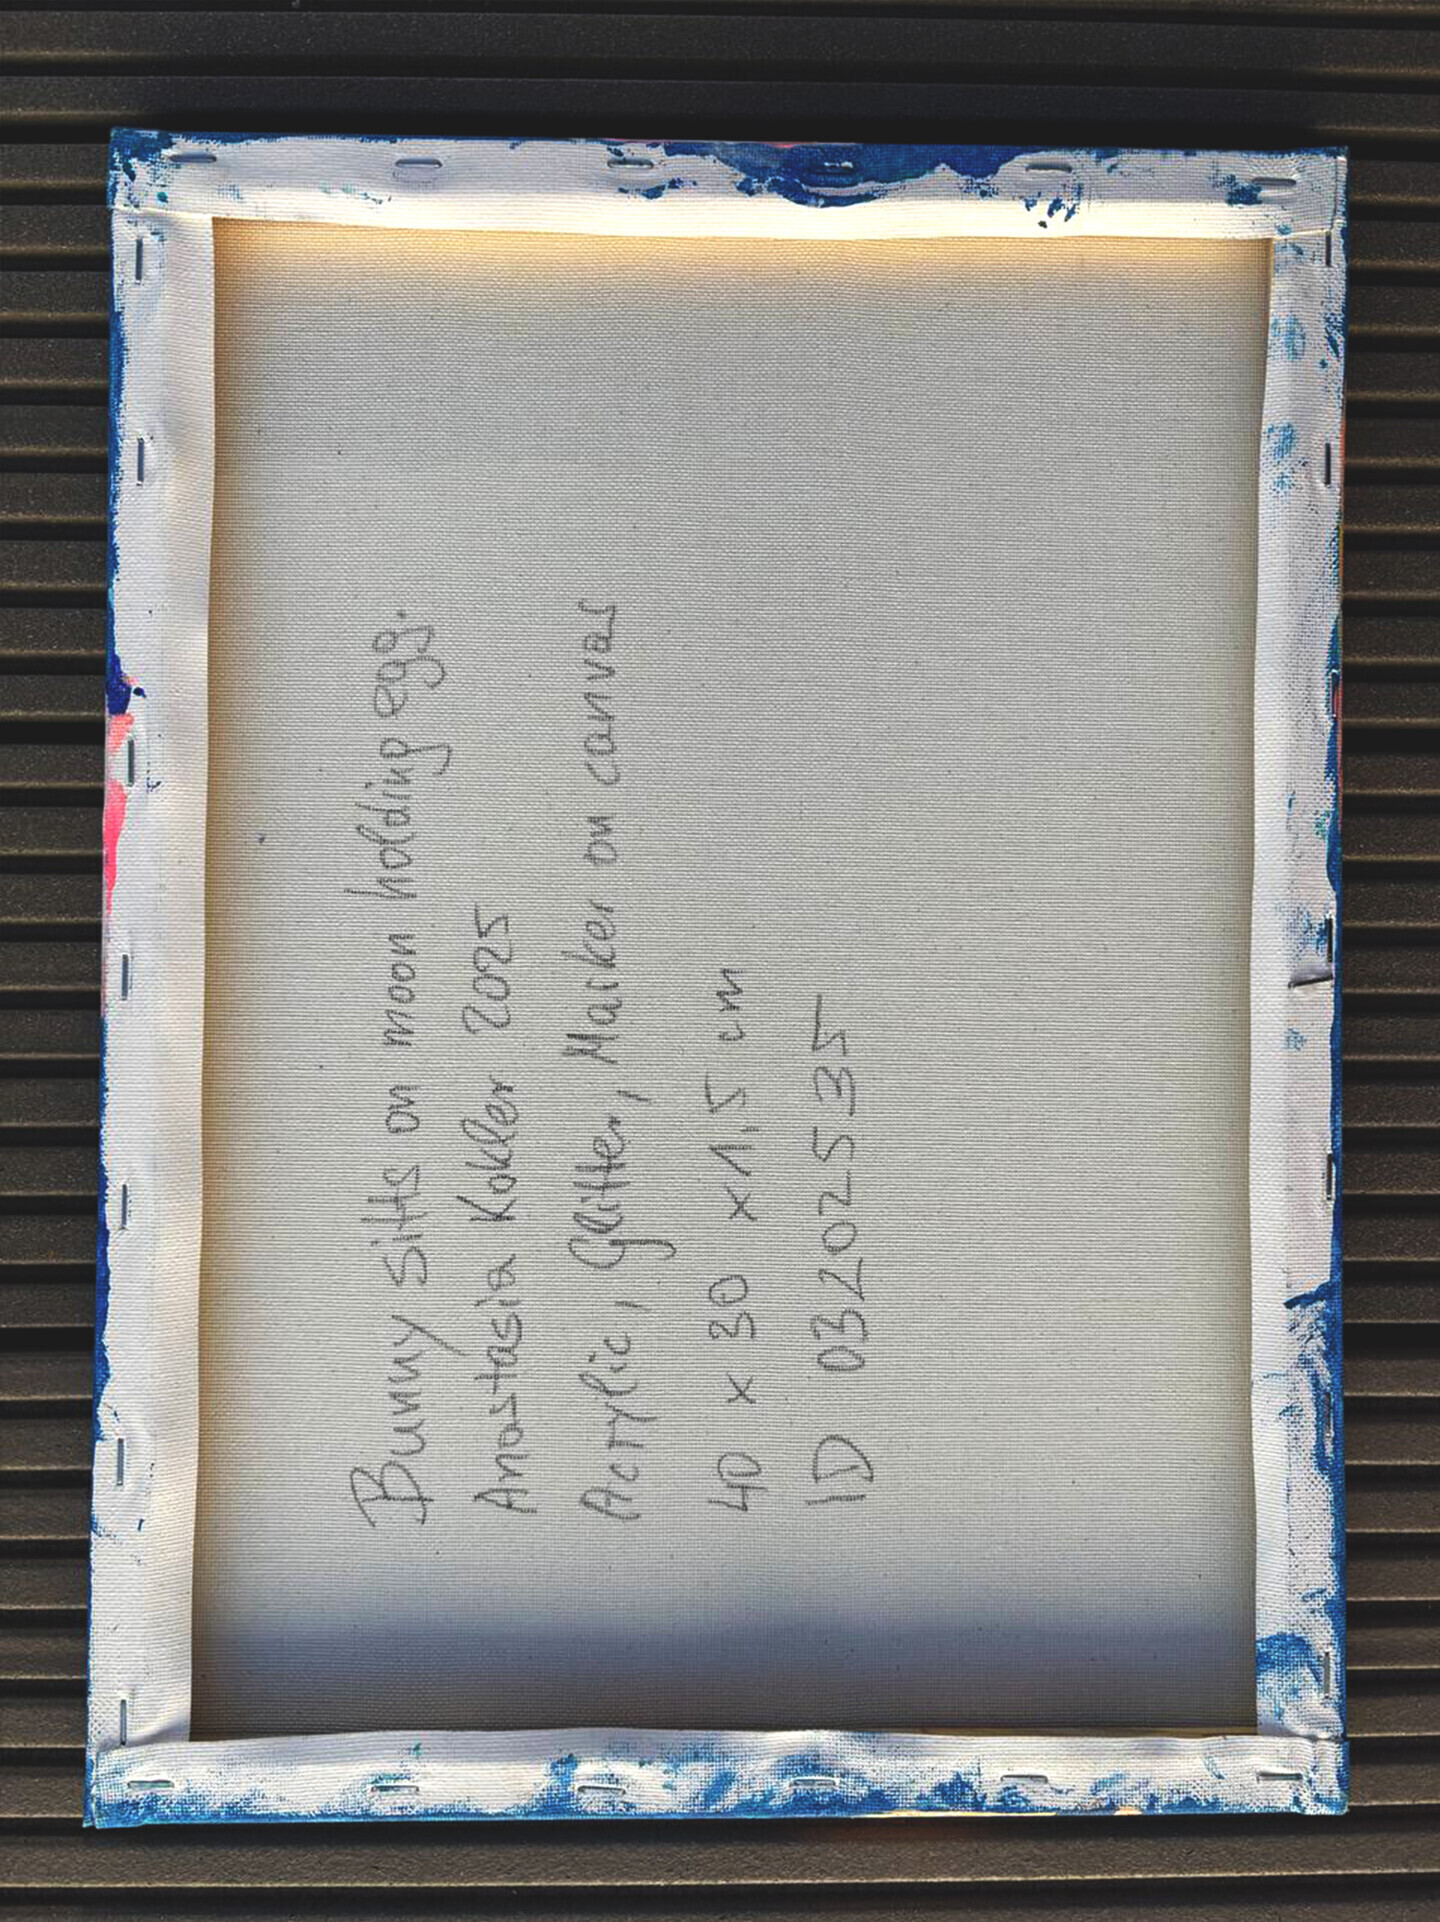 Bunny sitts on moon holding egg.
Anastasia Kokler 2025
Acrylic, Glitter, Marker on canvas
40 x 30 x 1,5 cm
ID 03202535